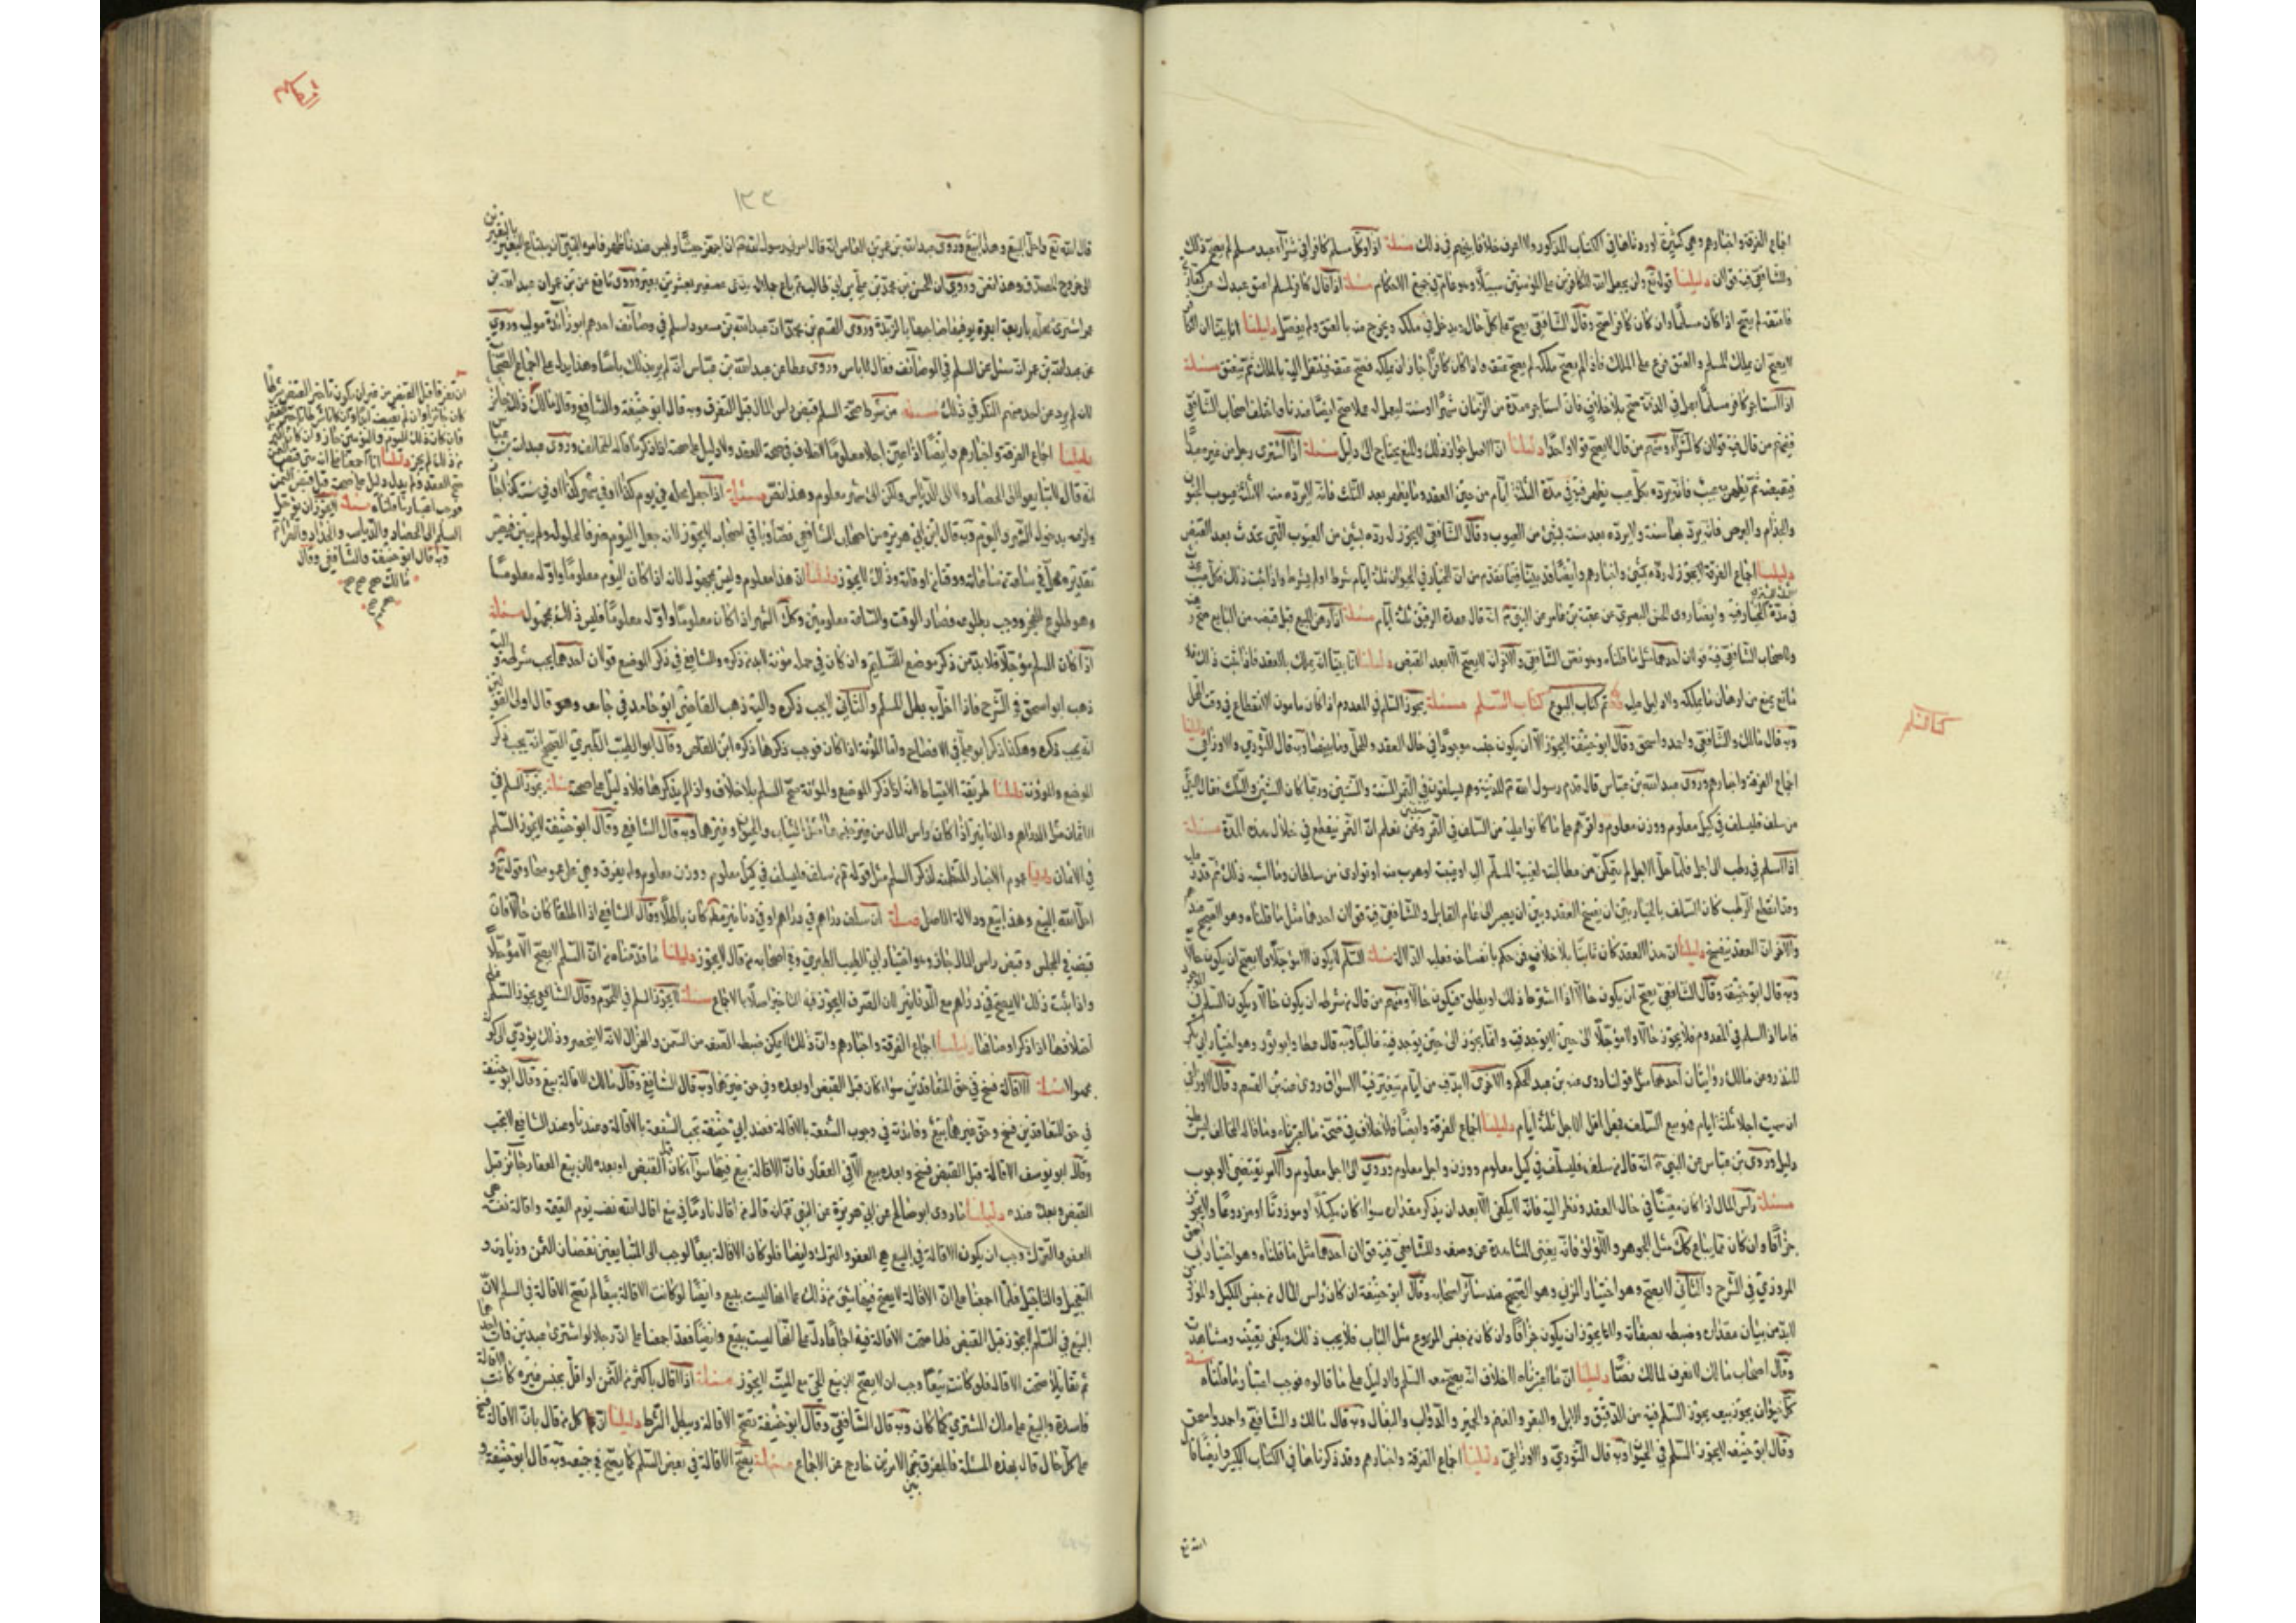 اجماع الفرقة واخبارهم وهي كثيرة اوردناها في الكتاب المذكور ولا اعرف خلافا بينهم في ذلك مسئلة اذا وكل مسلم كافرا في شرآء عبد مسلم لم يصح ذلك
وللشافعي فيه قولان دليلنا قوله تع ولن يجعل الله للكافرين على المؤمنين سبيلا وهو عام في جميع الاحكام مسئلة اذا قال كافر لمسلم اعتق عبدك عن كفارتي
فاعتقه لم يصح اذا كان مسلما وان كان كافرا صح وقال الشافعي يصح على كل حال ويدخل في ملكه ويخرج منه بالعتق ولم يفصل دليلنا انا بينا ان الكافر
لا يصح ان يملك المسلم والعتق فرع على الملك فاذا لم يصح ملكه لم يصح عتقه واذا كان كافرا جاز ان يملكه فصح عتقه فينتقل اليه بالملك ثم ينعتق مسئلة
اذا استاجر كافر مسلما لعمل في الذمة صح بلا خلاف فان استاجره مدة من الزمان شهرا او سنة ليعمل له عملا صح ايضا عندنا واختلف اصحاب الشافعي
فمنهم من قال فيه قولان كالشرآء ومنهم من قال لا يصح قولا واحدا دليلنا ان الاصل جواز ذلك والمنع يحتاج الى دليل مسئلة اذا اشترى رجل من غيره عبدا
فقبضه ثم ظهر به عيب فانه يرده بكل عيب يظهر فيه في مدة الثلثة ايام من حين العقد وما يظهر بعد الثلث فانه لا يرده منه الا ثلثة عيوب الجنون
والجذام والبرص فانه يرد بها سنة ولا يرده بعد سنة بشئ من العيوب وقال الشافعي لا يجوز له رده بشئ من العيوب التي تحدث بعد القبض
دليلنا اجماع الفرقة
في مدة وايضا روى الحسن البصري عن عقبة بن عامر عن النبي انه قال عهدة الرقيق ثلثة ايام مسئلة اذا رهن المبيع قبل قبضه من البايع صح
ولاصحاب الشافعي فيه قولان احدهما مثل ما قلناه وهو نص الشافعي والاخر انه لا يصح الا بعد القبض دليلنا انا بينا انه يملك بالعقد فاذا ثبت ذلك فلا
مانع يمنع من ارهان ما يملكه ولا دليل عليه تم كتاب البيوع كتاب السلم مسئلة يجوز السلم في المعدوم اذا كان مامون الانقطاع في وقت المحل
وبه قال مالك والشافعي واحمد واسحق وقال ابو حنيفة لا يجوز الا ان يكون جنسه موجودا في حال العقد والمحل وما بينهما وبه قال الثوري والاوزاعي دليلنا
اجماع الفرقة واخبارهم وروى عبد الله بن عباس قال قدم رسول الله المدينة وهم يسلفون في التمر السنة والسنتين وربما كان السنتين والثلث فقال النبي
من سلف فليسلف في كيل معلوم ووزن معلوم واقرهم على ما كانوا عليه من السلف في التمر سنتين ونحن نعلم ان التمر ينقطع في خلال هذه المدة مسئلة
اذا اسلم في رطب الى اجل فلما حل الاجل لم يتمكن من مطالبته لغيبة المسلم اليه او غيبته او هرب منه او توارى من سلطان وما اشبه ذلك ثم قدر عليه
وقد انقطع الرطب كان السلف بالخيار بين ان يفسخ العقد وبين ان يصبر الى عام القابل وللشافعي فيه قولان احدهما مثل ما قلناه وهو الصحيح عندهم
والاخر ان العقد ينفسخ دليلنا ان هذا العقد كان ثابتا بلا خلاف فمن حكم بانفساخه فعليه الدلالة مسئلة السلم لا يكون الا مؤجلا ولا يصح ان يكون حالا
وبه قال ابو حنيفة وقال الشافعي يصح ان يكون حالا اذا اشترط ذلك او يطلق فيكون حالا ومنهم من قال من شرطه ان يكون حالا ويكون المسلم فيه
فاما اذا السلم في المعدوم فلا يجوز حالا ولا مؤجلا الى حين لا يوجد فيه وانما يجوز الى حين يوجد فيه غالبا وبه قال عطا وابو ثور وهو اختيار ابي بكر
المنذر وعن مالك روايتان احدهما مثل قولنا رواه عنه بن عبد الحكم والاخرى لابد فيه من ايام يتغير فيه الاسواق روى عنه بن القسم وقال الاوزاعي
ان سميت اجلا ثلثة ايام فهو بيع السلف فجعل اقل الاجل ثلثة ايام دليلنا اجماع الفرقة وايضا فلا خلاف في صحة ما اعتبرناه وما قاله المخالف ليس عليه
دليل وروى بن عباس عن النبي انه قال من سلف فليسلف في كيل معلوم ووزن واجل معلوم وروي الى اجل معلوم والامر يقتضي الوجوب
مسئلة رأس المال اذا كان معينا في حال العقد ونظر اليه فانه لا يكفي الا بعد ان يذكر مقداره سواء كان مكيلا او موزونا او مزروعا ولا يجوز
جزافا وان كان مما يباع كذلك مثل الجوهر واللؤلؤ فانه يغني المشاهدة عن وصفه وللشافعي فيه قولان احدهما مثل ما قلناه وهو اختيار ابي اسحق
المروزي في الشرح والثاني لا يصح وهو اختيار المزني وهو الصحيح عند سائر اصحابه وقال ابو حنيفة ان كان رأس المال من جنس المكيل والموزون
لابد من بيان مقداره وضبطه بصفاته ولا يجوز ان يكون جزافا وان كان من جنس المزروع مثل الثياب فلا يجب ذلك ويكفي تعيينه ومشاهدته
وقال اصحاب مالك لا نعرف لمالك نصا دليلنا ان ما اعتبرناه لا خلاف انه يصح معه السلم ولا دليل على ما قالوه فوجب اعتبار ما قلناه مسئلة
كل حيوان يجوز بيعه يجوز السلم فيه من الرقيق والابل والبقر والغنم والحمير والدواب والبغال وبه قال مالك والشافعي واحمد واسحق
وقال ابو حنيفة لا يجوز السلم في الحيوان وبه قال الثوري والاوزاعي دليلنا اجماع الفرقة واخبارهم وقد ذكرناها في الكتاب الكبير وايضا قال
الله تع
كتاب السلم
١٣٣
قال الله تع واحل البيع وهذا بيع وروى عبد الله بن عمرو بن العاص انه قال امرني رسول الله ان اجهز جيشا وليس عندنا ظهر فامره النبي ان يبتاع البعير بالبعيرين
الى خروج المصدق وهذا نص وروي ان الحسن بن محمد بن علي بن ابي طالب باع جملا يدعى عصيفير بعشرين بعيرا وروى نافع عن بن عمر ان عبد الله بن
عمر اشترى راحلة باربعة ابعرة يوفيها صاحبها بالربذة وروى القسم بن محمد ان عبد الله بن مسعود اسلم في وصائف احدهم ابو زائدة مولاه وروي
عن عبد الله بن عمر انه سئل عن السلم في الوصائف فقال لا باس وروى عطا عن عبد الله بن عباس انه لم ير بذلك بأسا وهذا يدل على اجماع الصحابة
لانه لم يرد عن احد منهم النكر في ذلك مسئلة من شرط صحة السلم قبض راس المال قبل التفرق وبه قال ابو حنيفة والشافعي وقال مالك
دليلنا اجماع الفرقة واخبارهم وايضا اذا عين اجلا معلوما لا خلاف في صحة العقد ولا دليل على صحته اذا ذكر ما قاله المخالف وروى عبد الله بن عباس
انه قال لا تبايعوا الى الحصاد ولا الى الدياس ولكن الى شهر معلوم وهذا نص مسئلة اذا جعل محله في يوم كذا او في شهر كذا او في سنة كذا جاز
ولزمه بدخول الشهر واليوم وبه قال ابن ابي هريرة من اصحاب الشافعي نصا وباقي اصحابه لا يجوز لانه جعل اليوم ظرفا لحلوله ولم يبين
وهو طلوع الفجر ووجب بطلوعه فصار الوقت والساعة معلومين وكذلك الشهر اذا كان معلوما واوله معلوما فليس في ذلك مجهول مسئلة
اذا كان السلم مؤجلا فلابد من ذكر موضع التسليم وان كان في حمله مؤنة لابد من ذكره وللشافعي في ذكر الموضع قولان احدهما يجب شرطه واليه
ذهب ابو اسحق في الشرح فاذا اخل به بطل السلم والثاني لا يجب ذكره واليه ذهب القاضي ابو حامد في جامعه وهو قال اولى القولين
انه يجب ذكره وهكذا ذكر ابو علي في الافصاح واما المؤنة اذا كان فوجب ذكرها ذكره ابن القاص وقال ابو الطيب الطبري الصحيح انه يجب ذكر
الموضع والمؤنة دليلنا طريقة الاحتياط لانه اذا ذكر الموضع والمؤنة صح السلم بلا خلاف واذا لم يذكرهما فلا دليل على صحته مسئلة يجوز السلم في
الاثمان مثل الدراهم والدنانير اذا كان راس المال من غير جنسهما مثل الثياب والحيوان وغيرهما وبه قال الشافعي وقال ابو حنيفة لا يجوز السلم
في الاثمان دليلنا عموم الاخبار المتضمنة لذكر السلم مثل قوله من سلف فليسلف في كيل معلوم ووزن معلوم ولم يفرق وهي على عمومها وقوله تع و
احل الله البيع وهذا بيع ودلالة الاصل مسئلة ان سلف دراهم في دراهم او في دنانير مطلقا كان باطلا وقال الشافعي اذا اطلقا كان حالا فان
قبضه في المجلس وقبض راس المال جاز وهو اختيار ابي الطيب الطبري وفي اصحابه من قال لا يجوز دليلنا ما قدمناه من ان السلم لا يصح الا مؤجلا
واذا ثبت ذلك لا يصح في دراهم مع الدنانير لان الصرف لا يجوز فيه التاخير اصلا بالاجماع مسئلة لا يجوز السلم في اللحوم وقال الشافعي يجوز السلم
دليلنا اجماع الفرقة واخبارهم وان ذلك لا يمكن ضبط الصفة من السمن والهزال لانه لا ينحصر وذلك يؤدي الى كونه
مجهولا مسئلة الاقالة فسخ في حق المتعاقدين سواء كان قبل القبض او بعده وفي حق غيرهما وبه قال الشافعي وقال مالك الاقالة بيع وقال ابو حنيفة
في حق المتعاقدين فسخ وفي حق غيرهما بيع وفائدته في وجوب الشفعة بالاقالة فعند ابي حنيفة تجب الشفعة بالاقالة وعندنا وعند الشافعي لا تجب
وقال ابو يوسف الاقالة قبل القبض فسخ وبعده بيع الا في العقار فان الاقالة بيع فيها سواء كان قبل القبض او بعده لان بيع العقار جائز قبل
القبض وبعده عنده دليلنا ما روى ابو صالح عن ابي هريرة عن النبي انه قال من اقال نادما في بيع اقاله الله نفسه يوم القيمة واقالة نفسه هي
العفو والترك وجب ان يكون الاقالة في البيع هي العفو والترك وايضا فلو كان الاقالة بيعا لوجب الى المتبايعين نقصان الثمن وزيادته و
التعجيل والتاجيل فلما اجمعنا على ان الاقالة لا يصح فيها شئ من ذلك على انها ليست ببيع وايضا لو كانت الاقالة بيعا لم تصح الاقالة في السلم لان
البيع في السلم لا يجوز قبل القبض فلما صحت الاقالة فيه اجماعا دل على انها ليست ببيع وايضا فقد اجمعنا على ان رجلا لو اشترى عبدين فمات احدهما
ثم تقايلا صحت الاقالة فلو كانت بيعا وجب ان لا يصح لان بيع الحي مع الميت لا يجوز مسئلة اذا اقال باكثر من الثمن او اقل بجنس غيره كانت الاقالة
فاسدة والمبيع على ملك المشتري كما كان وبه قال الشافعي وقال ابو حنيفة تصح الاقالة ويبطل الشرط دليلنا ان كل من قال بان الاقالة فسخ
على كل حال قال بهذه المسئلة فالمفرق بين الامرين خارج عن الاجماع مسئلة يصح الاقالة في بعض السلم كما يصح في جميعه وبه قال ابو حنيفة و
ان تفرقا قبل القبض من غير ان يكون تاخير القبض شرطا
دليلنا انا اجمعنا على انه متى قبض الثمن
صح العقد ولم يدل دليل على صحته قبل قبض الثمن
فوجب اعتبار ما قلناه مسئلة لا يجوز ان يؤجل
السلم الى الحصاد والدياس والجذاذ والصرام
وبه قال ابو حنيفة والشافعي وقال
مالك